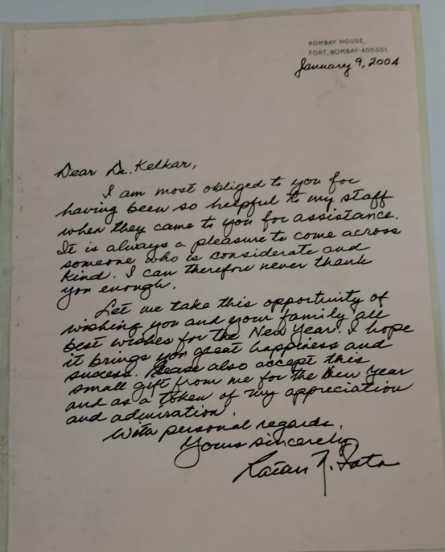 BOMBAY HOUSE,
FORT, BOMBAY-400001
January 9, 2004
Dear Dr. Kelkar,
I am most obliged to you for
having been so helpful to my staff
when they came to you for assistance.
It is always a pleasure to come across
someone who is considerate and
kind. I can therefore never thank
you enough.
Let me take this opportunity of
wishing you and your family all
best wishes for the New Year. I hope
it brings you great happiness and
success. Please also accept this
small gift from me for the New Year
and as a token of my appreciation
and admiration.
With personal regards,
Yours sincerely
Ratan N. Tata